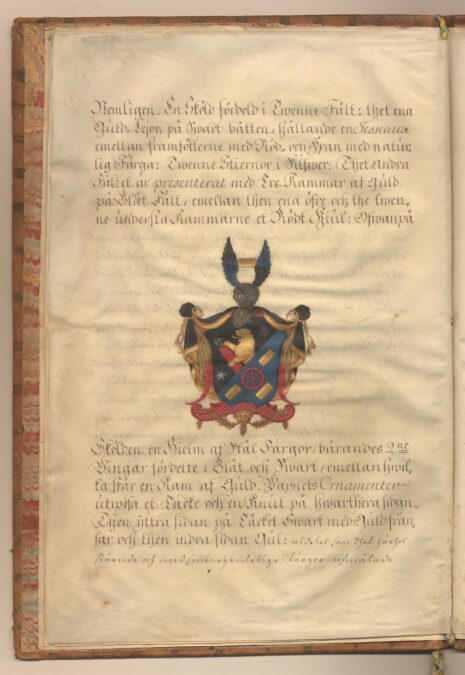 Nemligen. En Sköld fördeld i Twenne Fält: thet ena
Guld Lejon på Swart båtten, hållande en Tesseaux
emellan framföllerne med Röd och Fran med natur,
lig Färga: Twenne Stiernor i Silfwer: Thet andra
Fältet är presenterat med Tre Kammar af Guld
på Blåt Fält, emellan then ena öfre och the twen,
ne underska Kammarne et Rödt Hjul: Ofwanpå
Skölden en Hielm af Stål Färgor, bärandes 2ne
Wingar fördelte i Blåt och Swart, emellan hwil,
ka står en Kam af Guld. Wapnets Ornamenter
utwisa et Täcke och en Knut på hwarthera sidan.
Then yttra sidan på Täcket Swart med Guld fran,
sar och then indra sidan Gul: aldeles som thet härhos
stående och med sina egenteliga Färgor afmålade